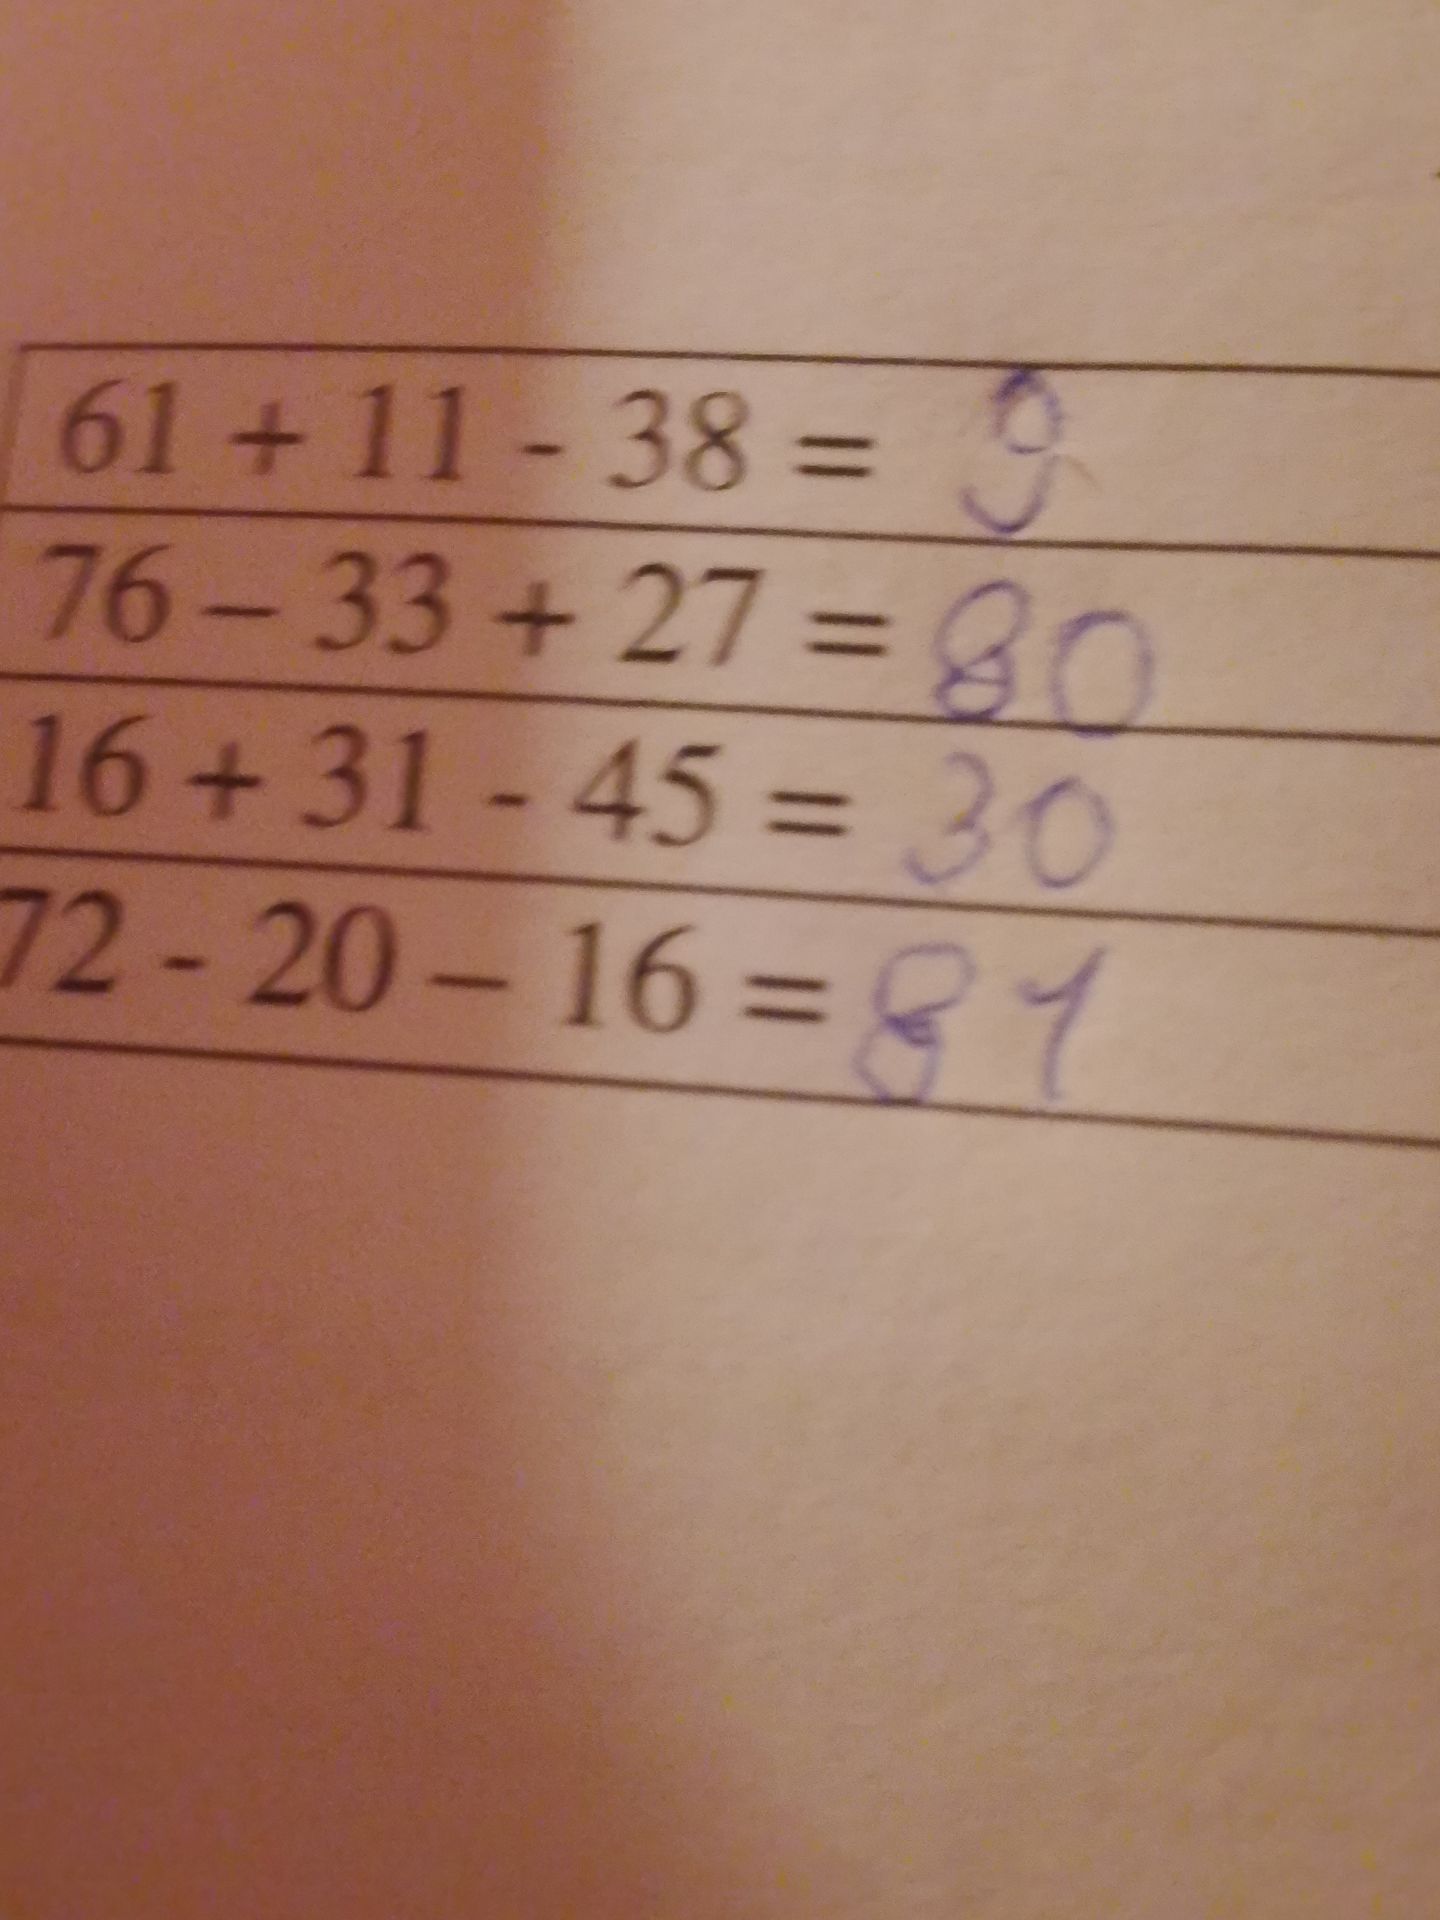 61 + 11 - 38 = 9
76 – 33 + 27 = 80
16 + 31 - 45 = 30
72 - 20 – 16 = 81